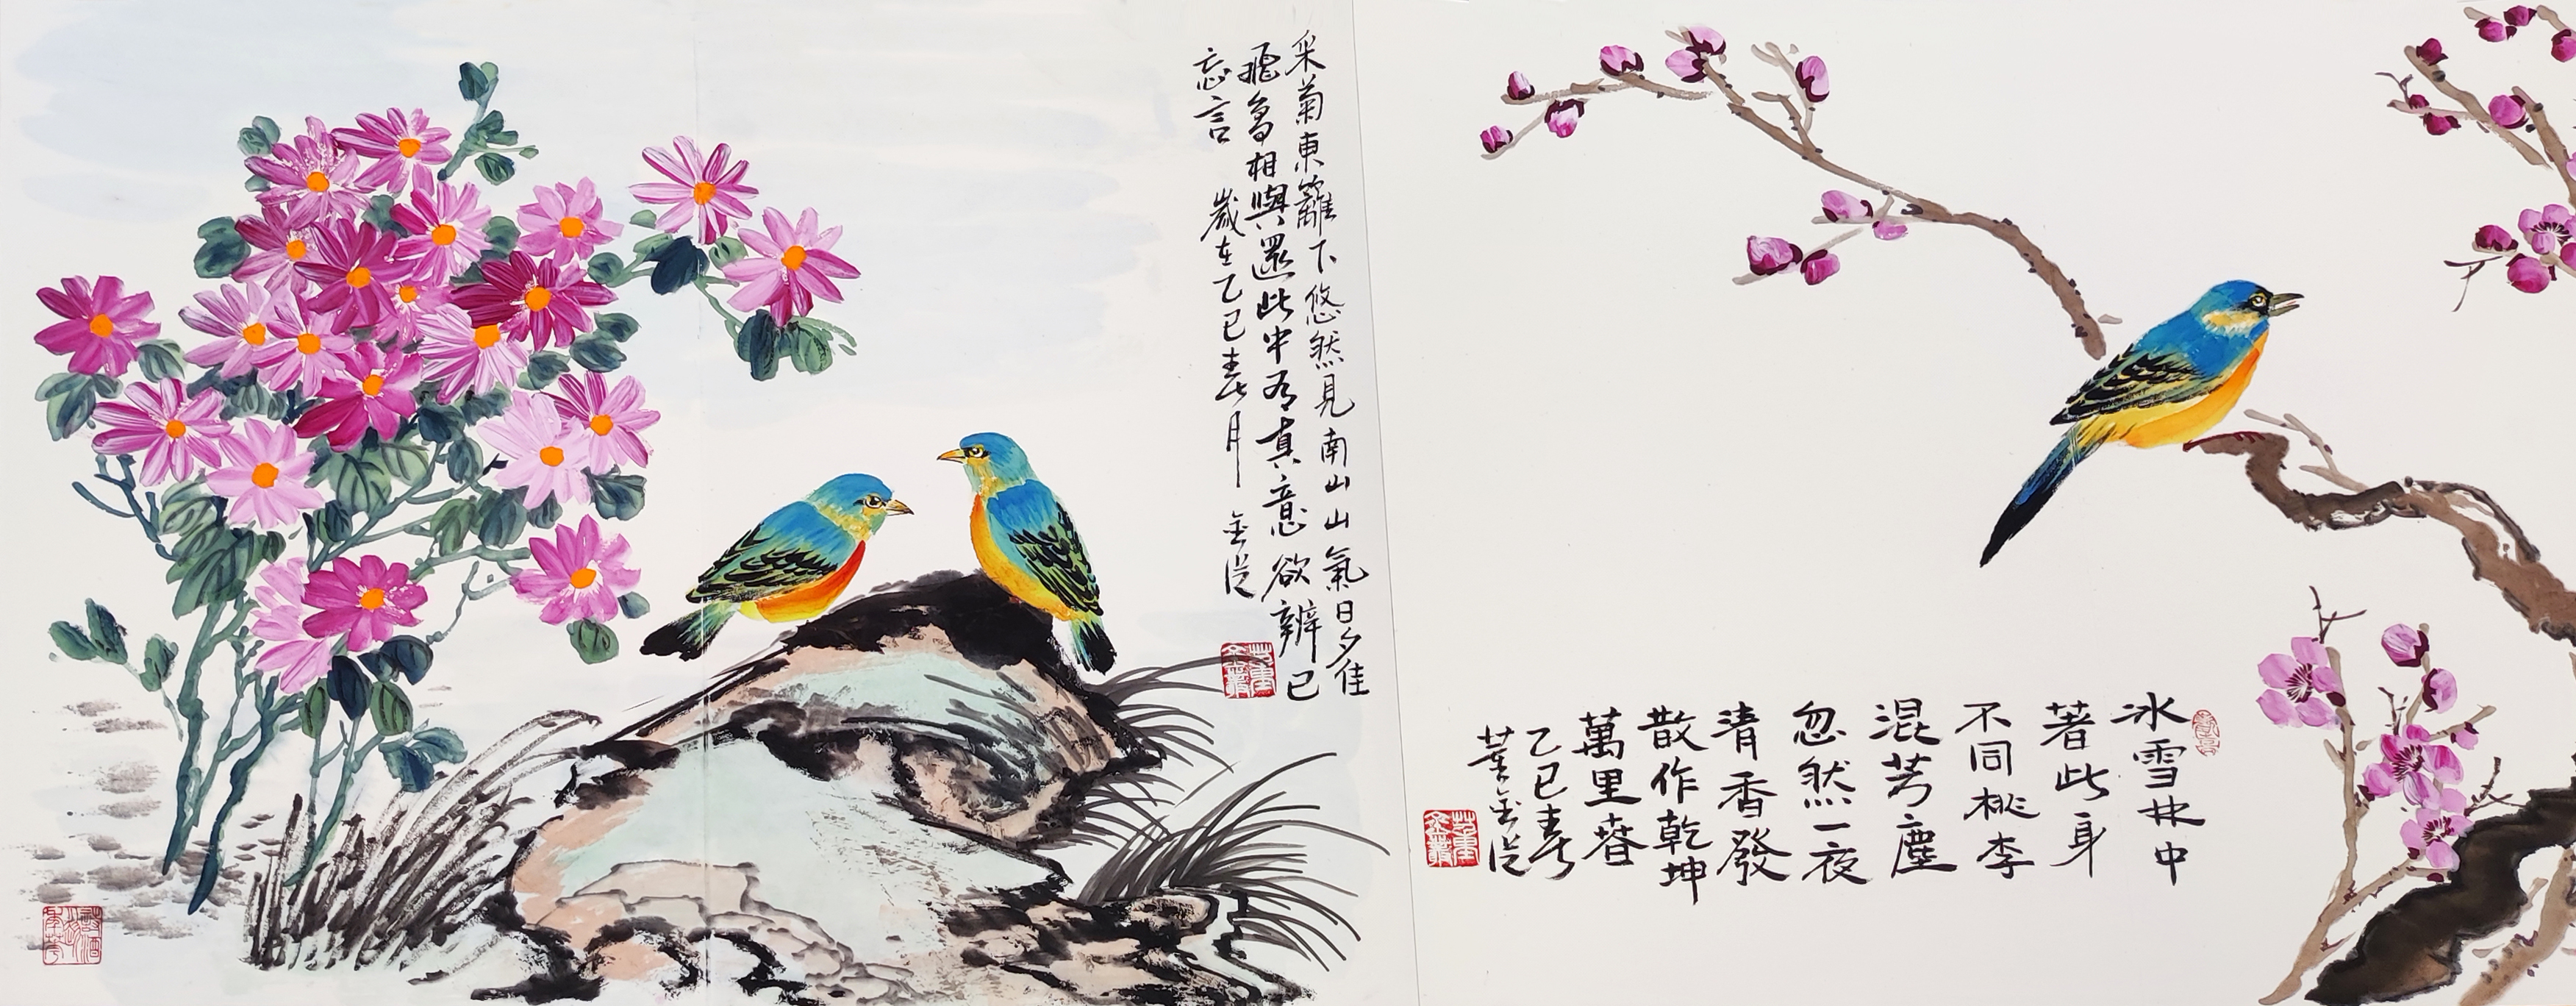 采菊東籬下悠然見南山山氣日夕佳
飛鳥相與還此中有真意欲辨已
忘言 歲在乙巳春月 金
冰雪林中
著此身
不同桃李
混芳塵
忽然一夜
清香發
散作乾坤
萬里春
乙巳春
董金